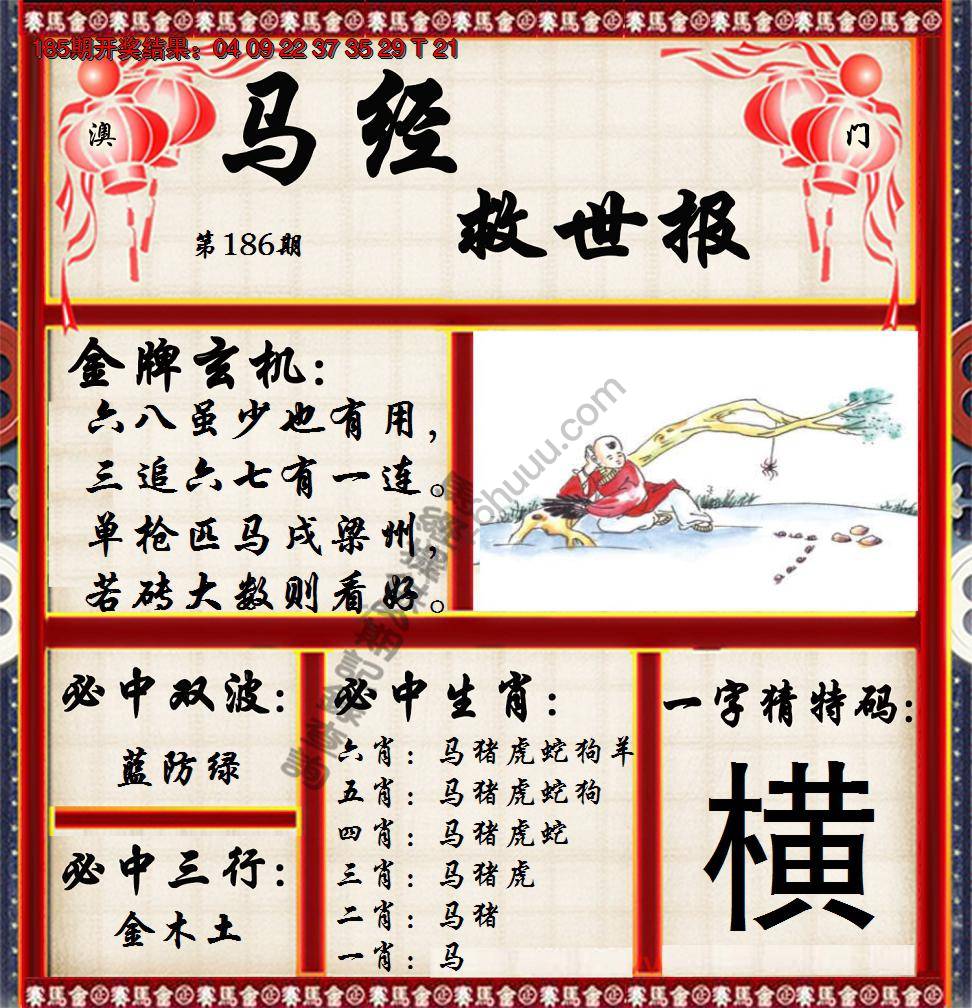 185期开奖结果：04 09 22 37 35 29 T 21
澳
门
马经
救世报
第186期
金牌玄机：
六八虽少也有用，
三追六七有一连。
单枪匹马戍梁州，
若砖大数则看好。
必中双波：
蓝防绿
必中三行：
金木土
必中生肖：
六肖：马猪虎蛇狗羊
五肖：马猪虎蛇狗
四肖：马猪虎蛇
三肖：马猪虎
二肖：马猪
一肖：马
一字猜特码：
横